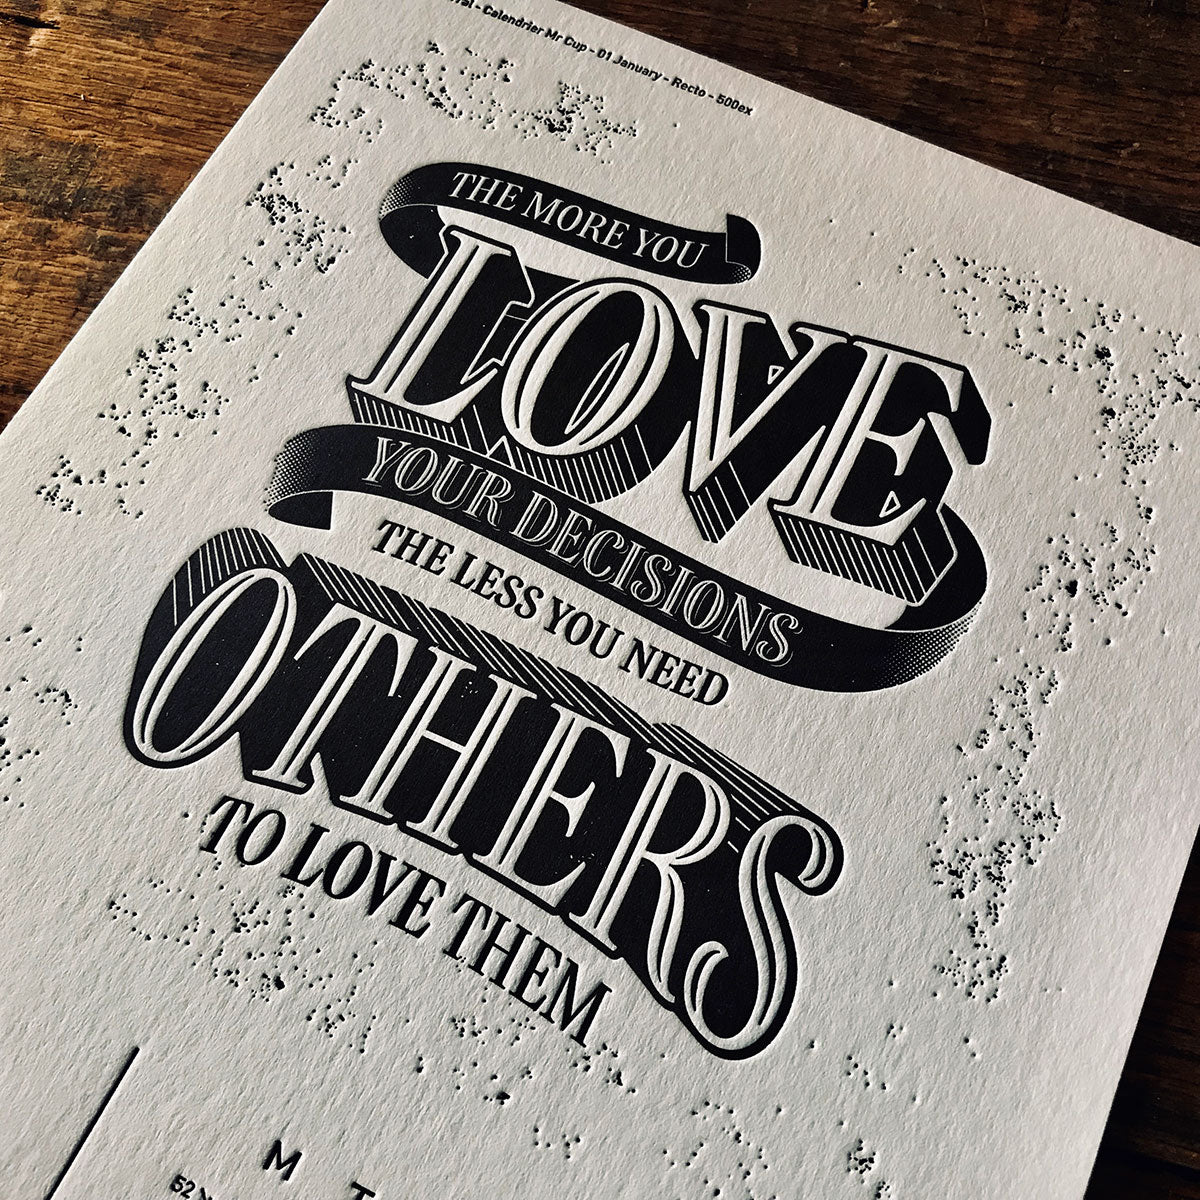 - Calendrier Mr Cup - 01 January - Recto - 500ex
THE MORE YOU
LOVE
YOUR DECISIONS
THE LESS YOU NEED
OTHERS
TO LOVE THEM
M T
52